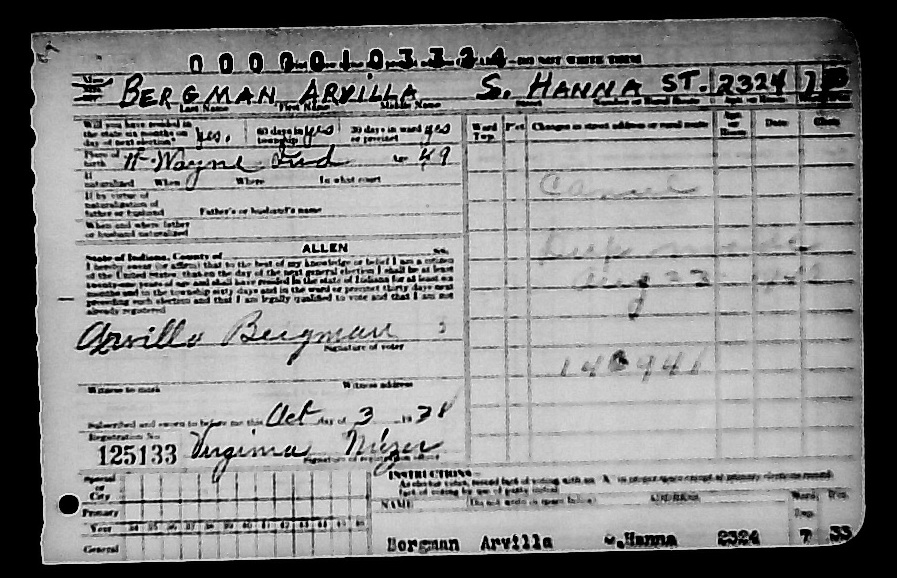 0000103324 —DO NOT WRITE THIS
BERGMAN ARVILLA S. HANNA ST. 2324 7
Last Name First Name Middle Name Street Number or Rural Route Apt. or Room
Will you have resided in the state six months on day of next election? yes. 60 days in township yes 30 days in ward or precinct yes
Ward Twp. Pct. Changes in street address or rural route Apt. or Room Date Clerk
Place of birth Ft Wayne Ind Age 49
If naturalized When Where In what court
Cancel
If by virtue of naturalization of father or husband Father's or husband's name
When and where father or husband naturalized
Dup
Aug 23
State of Indiana, County of ALLEN ss.
I hereby swear (or affirm) that to the best of my knowledge or belief I am a citizen
of the United States; that on the day of the next general election I shall be at least
twenty-one years of age and shall have resided in the state of Indiana for at least six
months and in the township sixty days and in the ward or precinct thirty days next
preceding such election and that I am legally qualified to vote and that I am not
already registered
Arvilla Bergman
Signature of voter
Witness to mark Witness address
Subscribed and sworn to before me this Oct day of 3 19 38
Registration No
125133 Virginia
INSTRUCTIONS—
Special or City
Primary
NAME (Do not write in space below) ADDRESS Ward Twp. Pct.
Year 34 35 36 37 38 39 40 41 42 43 44 45 46
General
Bergman Arvilla S.Hanna 2324 7 33